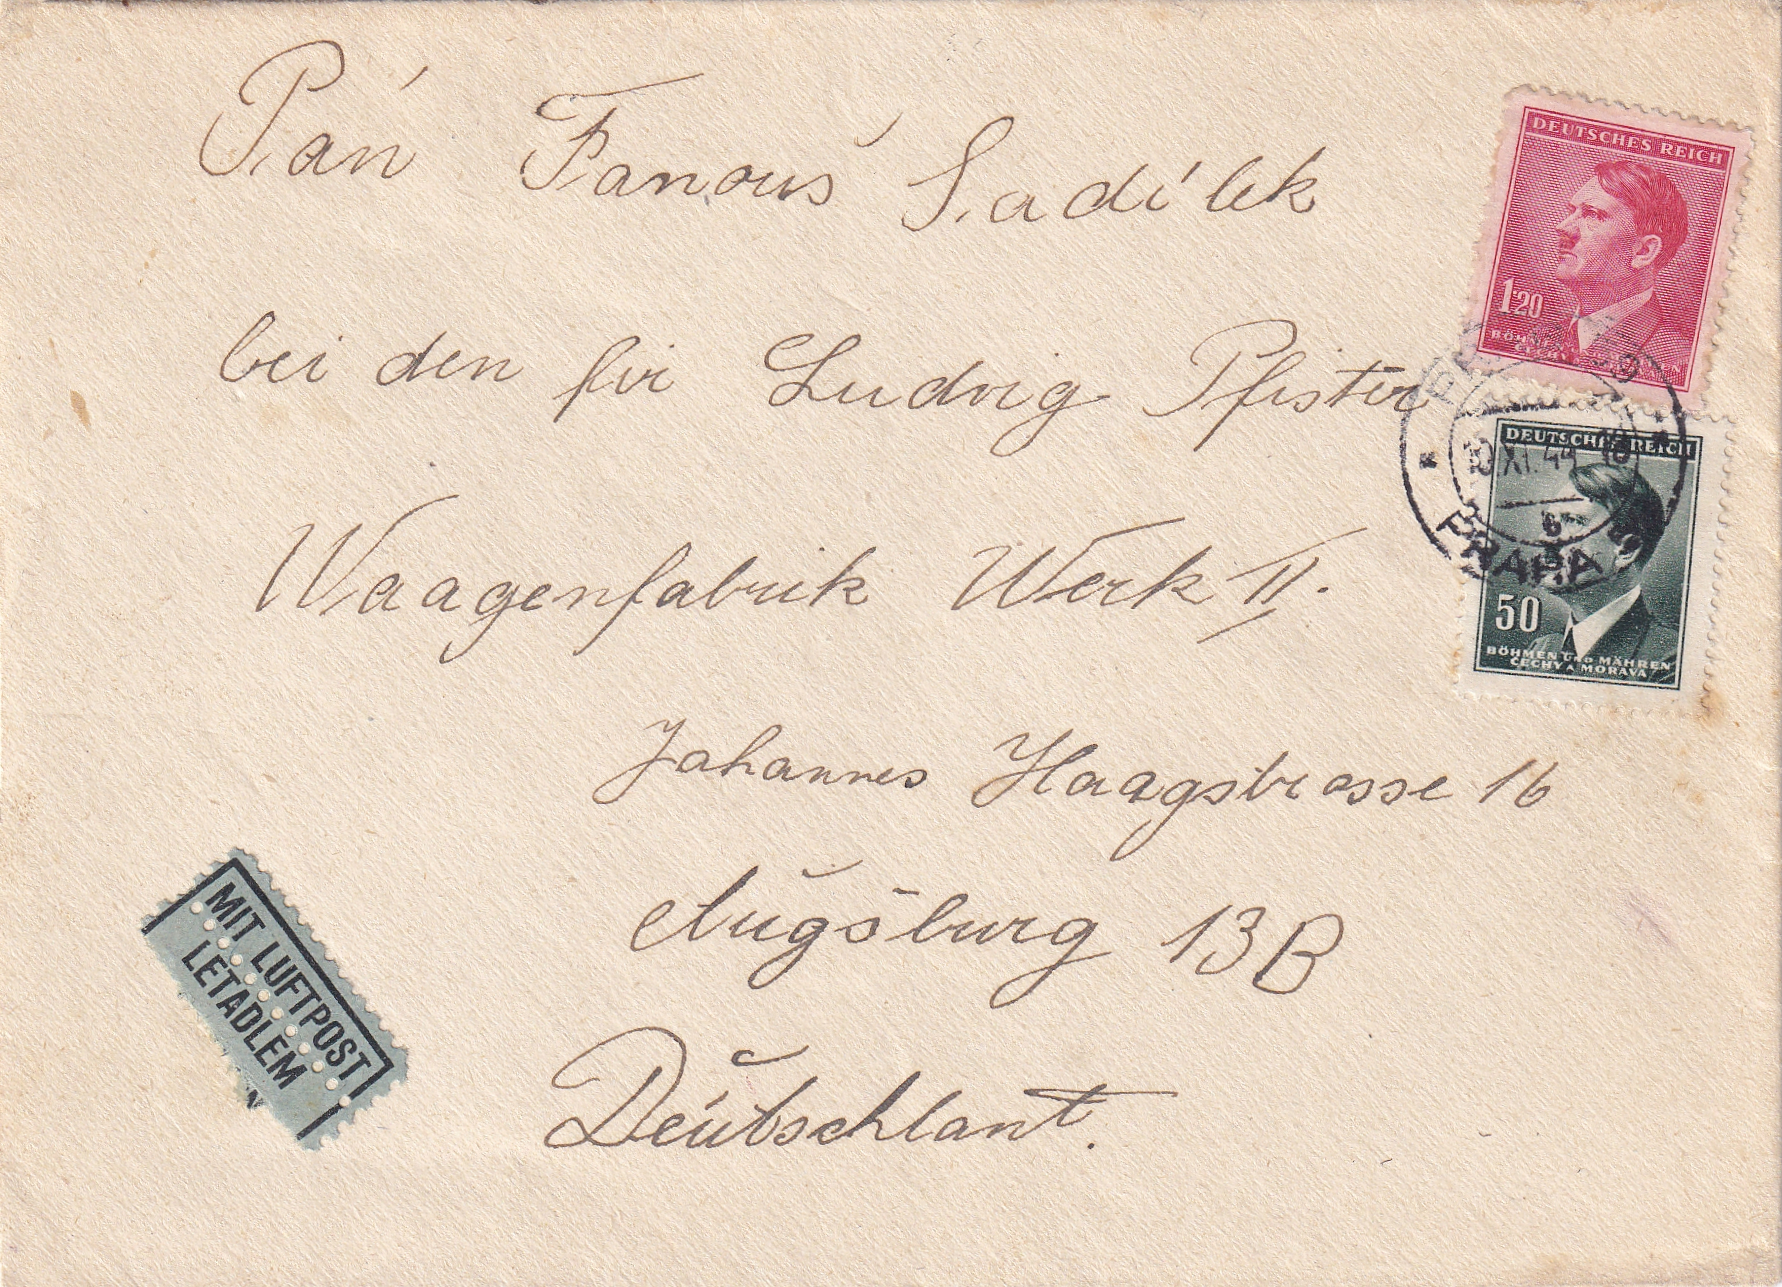 Pán Fanouš Sadílek
bei den fir Ludvig Pfister
Waagenfabrik Werk II.
Johannes Haagstrasse 16
Augšburg 13B
Deutschlant.
DEUTSCHES REICH
1.20
BÖHMEN
DEUTSCHES REICH
50
BÖHMEN UND MÄHREN
ČECHY A MORAVA
10.XI.44 18
PRAHA
MIT LUFTPOST
LETADLEM